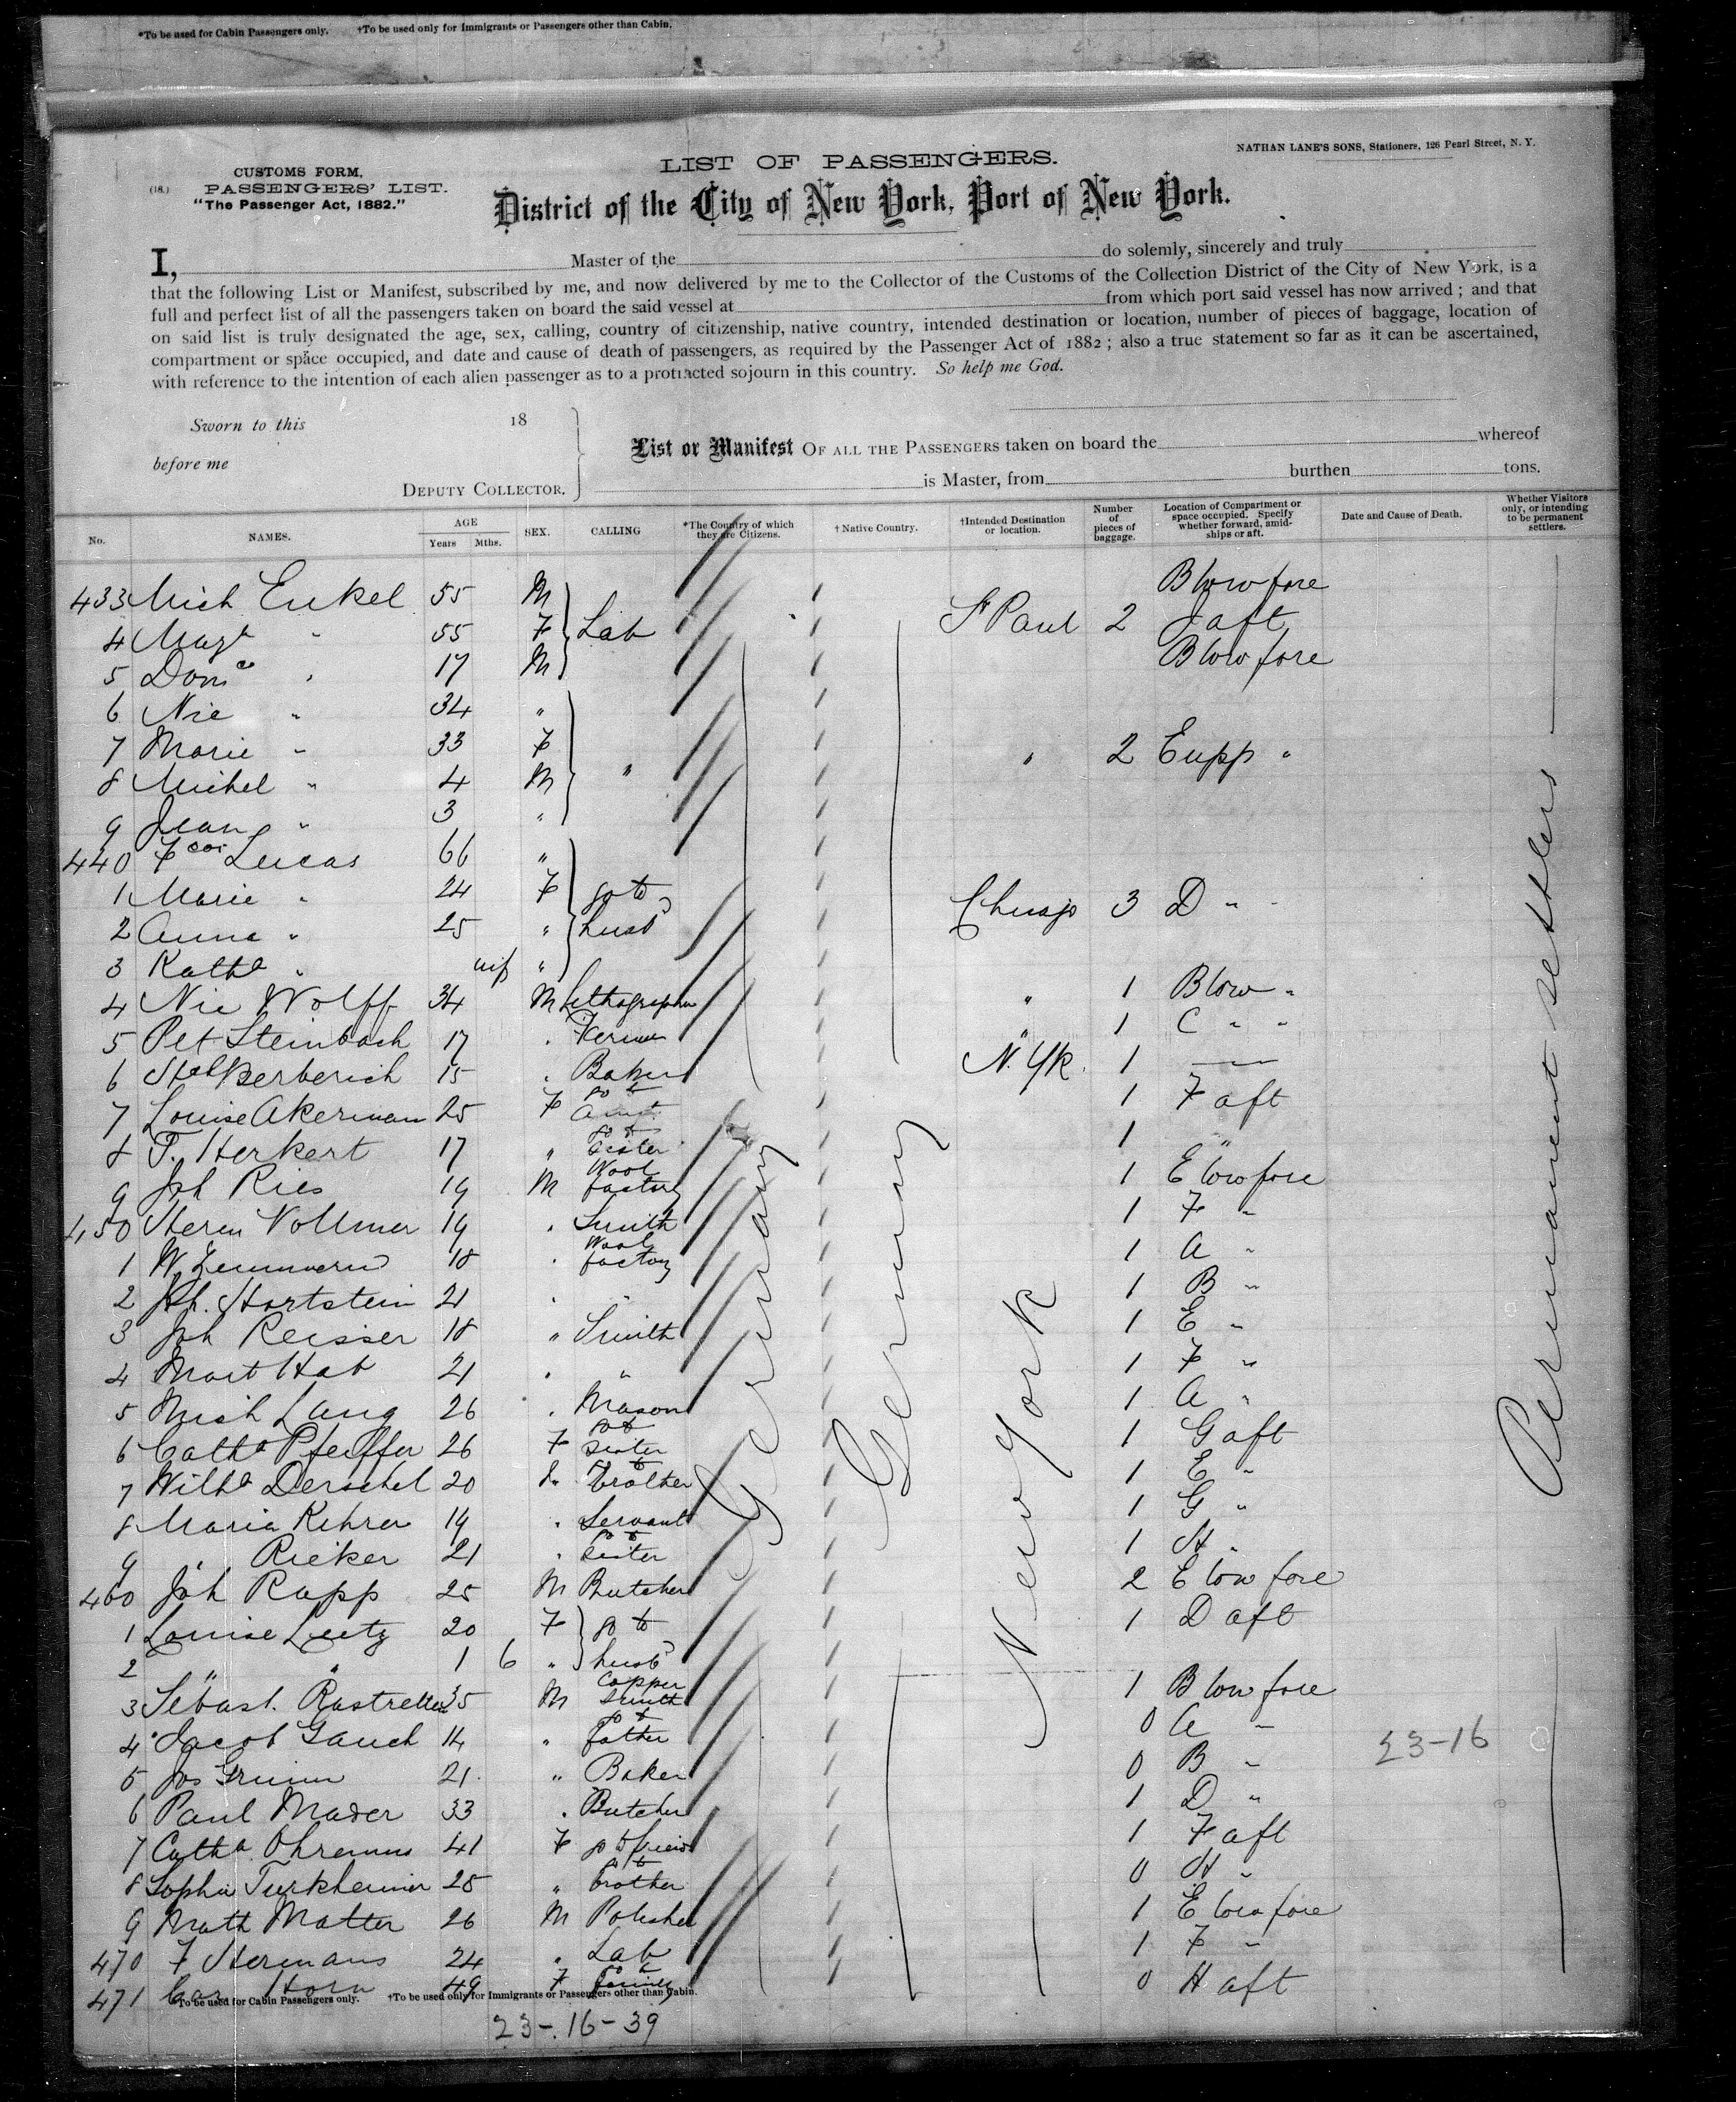 *To be used for Cabin Passengers only. †To be used only for Immigrants or Passengers other than Cabin.
NATHAN LANE'S SONS, Stationers, 126 Pearl Street, N. Y.
(18.) CUSTOMS FORM,
PASSENGERS' LIST.
"The Passenger Act, 1882."
LIST OF PASSENGERS.
District of the City of New York, Port of New York.
I, Master of the do solemnly, sincerely and truly
that the following List or Manifest, subscribed by me, and now delivered by me to the Collector of the Customs of the Collection District of the City of New York, is a
full and perfect list of all the passengers taken on board the said vessel at from which port said vessel has now arrived; and that
on said list is truly designated the age, sex, calling, country of citizenship, native country, intended destination or location, number of pieces of baggage, location of
compartment or space occupied, and date and cause of death of passengers, as required by the Passenger Act of 1882; also a true statement so far as it can be ascertained,
with reference to the intention of each alien passenger as to a protracted sojourn in this country. So help me God.
Sworn to this 18
before me
DEPUTY COLLECTOR.
List or Manifest OF ALL THE PASSENGERS taken on board the whereof
is Master, from burthen tons.
No. NAMES. AGE Years Mths. SEX. CALLING *The Country of which they are Citizens. †Native Country. †Intended Destination or location. Number of pieces of baggage. Location of Compartment or space occupied. Specify whether forward, amidships or aft. Date and Cause of Death. Whether Visitors only, or intending to be permanent settlers.
433 Mich Enkel 55 M B low fore
4 Magt " 55 F Lab St Paul 2 J aft
5 Domco " 17 M B low fore
6 Nic " 34 "
7 Marie " 33 F " " 2 E upp "
8 Michel " 4 M
9 Jean " 3 "
440 Fcoi Lucas 66 "
1 Marie " 24 F go to Chicago 3 D " "
2 Anna " 25 " husb
3 Katha " inf "
4 Nic Wolff 34 M Lithographer " 1 B low "
5 Pet Steinbach 17 " Farmer " 1 C " "
6 Berberich 15 " Baker N. Yk. 1
7 Louise Akerman 25 F go to Aunt 1 F aft
8 T. Herkert 17 " go to Sister 1 "
9 Joh Ries 19 M Wool factory 1 E low fore
450 Herm Vollmer 19 " Smith 1 F "
1 W. 18 " Wool factory 1 A "
2 Ph. Hartstein 21 " " 1 B "
3 Joh Reisser 18 " Smith 1 E "
4 Mart Hab 21 " " 1 F "
5 Mich Lang 26 " Mason 1 A "
6 Catha Pfeiffer 26 F go to Sister 1 G aft
7 Wilha Derschel 20 " to brother 1 E "
8 Maria Rehrer 19 " Servant 1 G "
9 " Rieker 21 " go to Sister 1 H "
460 Joh Rapp 25 M Butcher 2 E low fore
1 Louise Lutz 20 F go to 1 D aft
2 " " 1 6 " husb
3 Sebast. Rastretter 35 M Copper Smith 1 B low fore
4 Jacob Gauch 14 " go to father 0 A "
5 Jos Grimm 21 " Baker 0 B "
6 Paul Mader 33 " Butcher 1 D "
7 Catha Ohremus 41 F go to friend 1 F aft
8 Sophie Turkheimer 25 " go to brother 0 H "
9 Math Matter 26 M Polisher 1 E low fore
470 F Hermans 24 " Lab 1 F "
471 Horn 49 F go to family 0 H aft
Germany
Germany
New York
Permanent settlers
23-16
*To be used for Cabin Passengers only. †To be used only for Immigrants or Passengers other than Cabin.
23-.16-39